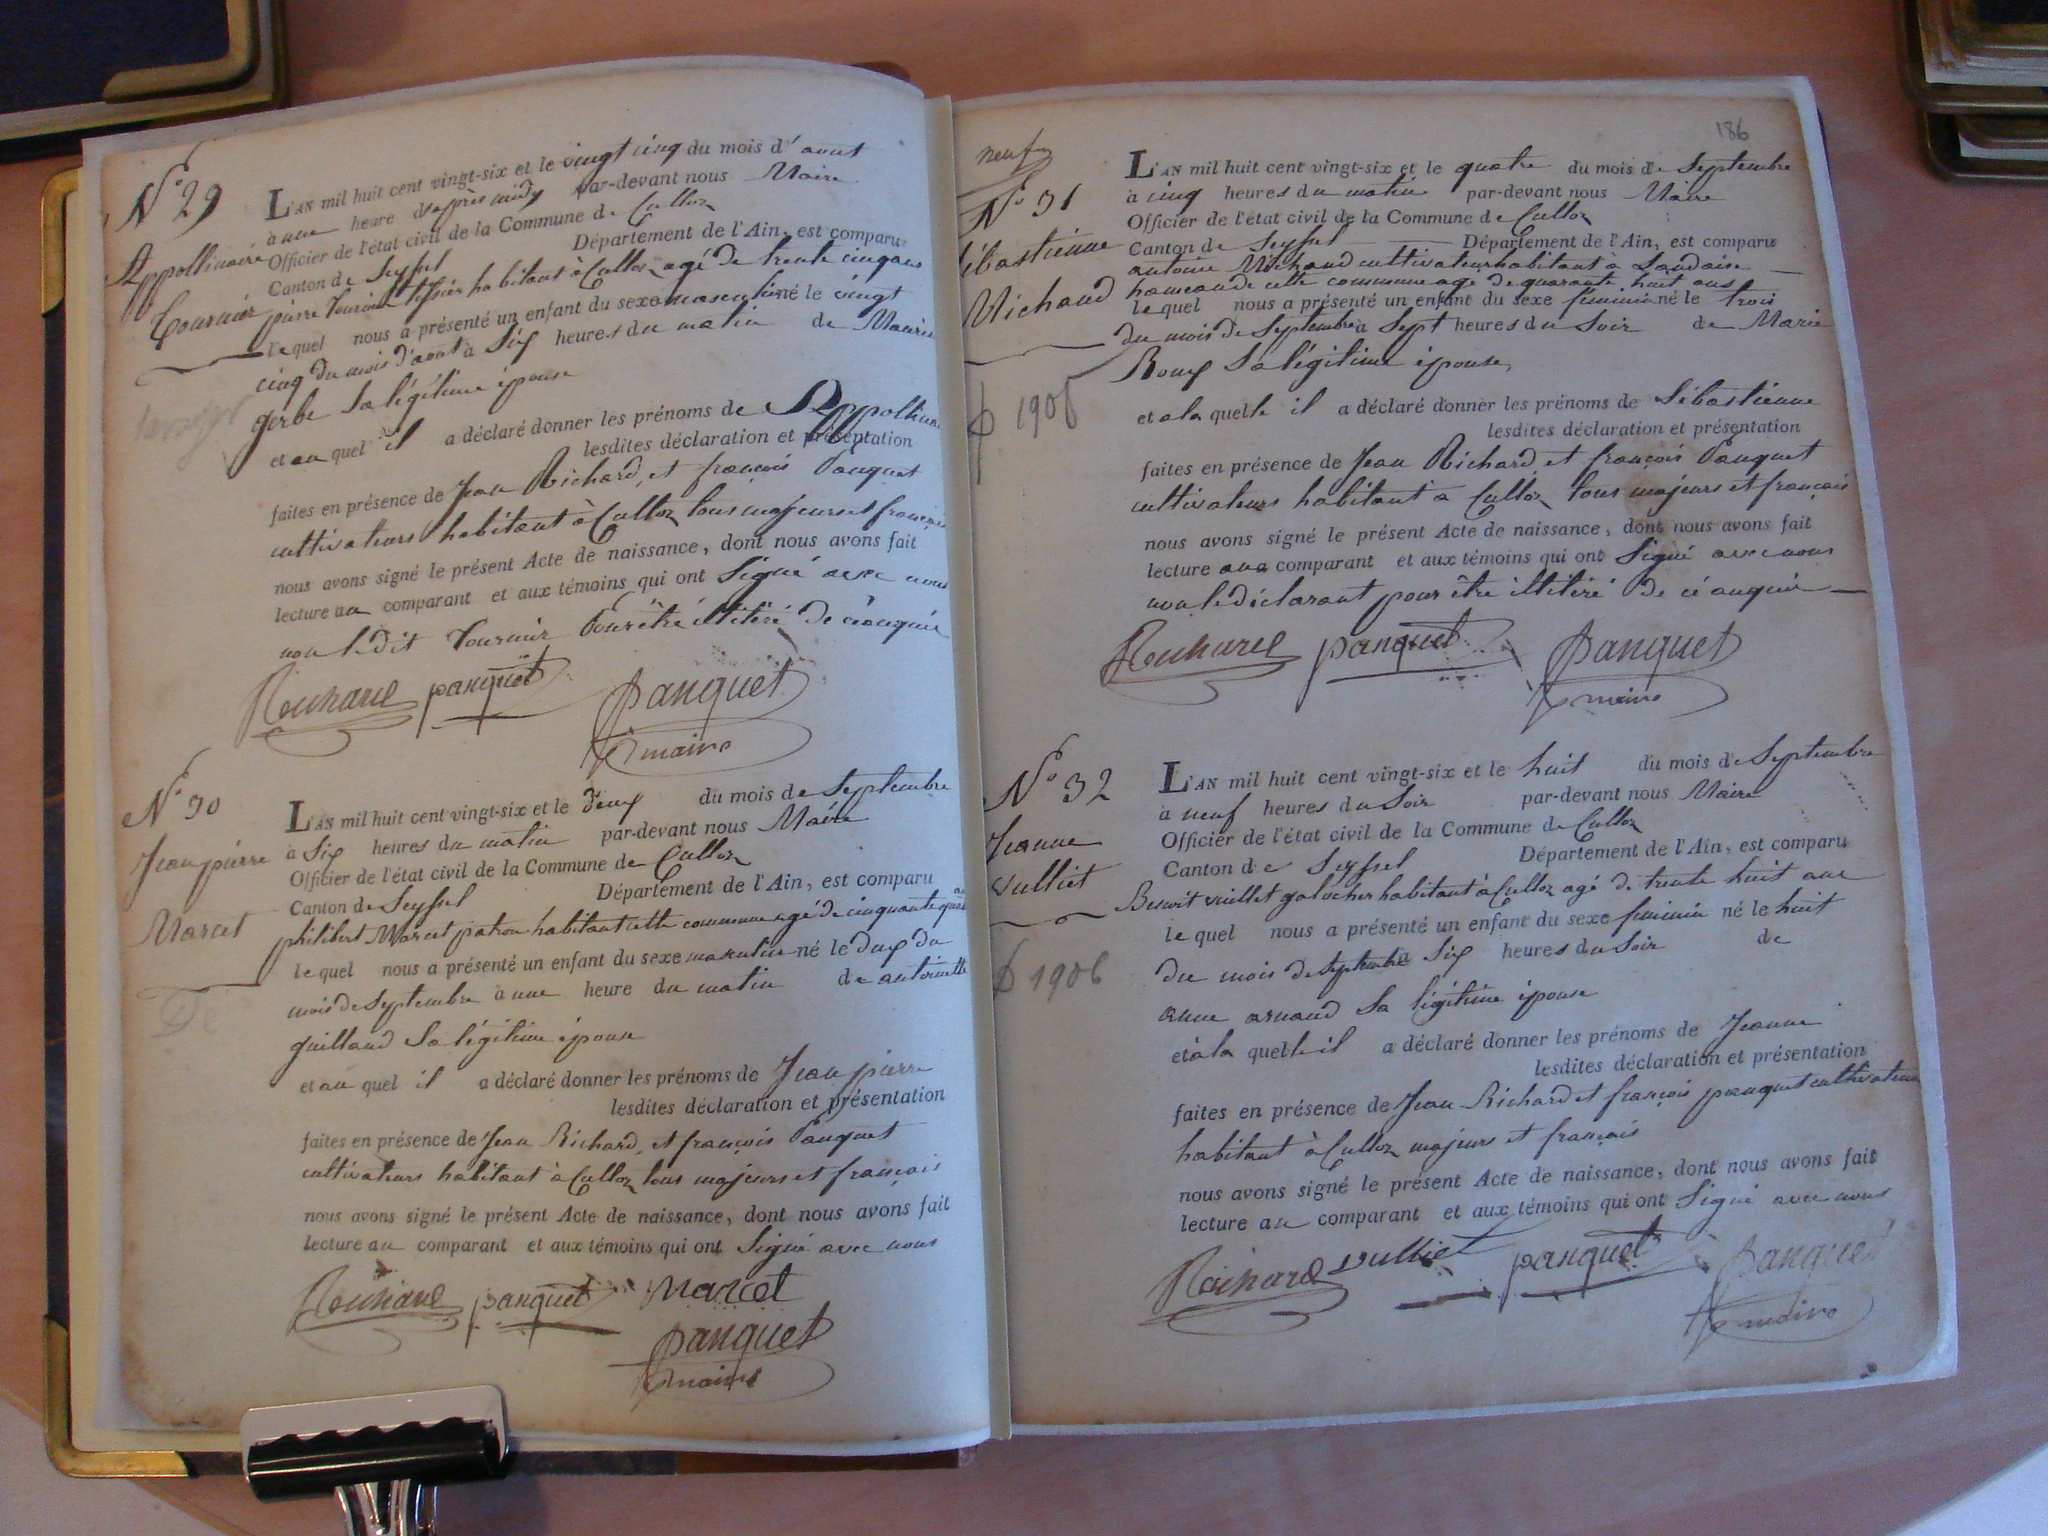 N° 29
Appollinaire
Tournier
L'AN mil huit cent vingt-six et le vingt cinq du mois d'aout
à une heure d'après midy par-devant nous Maire
Officier de l'état civil de la Commune de Culloz
Canton de Seyssel Département de l'Ain, est comparu
pierre Tournier tissier habitant à Culloz agé de trente cinq ans
lequel nous a présenté un enfant du sexe masculin né le vingt
cinq du mois d'aout à Six heures du matin de Maurise
gerbe Sa légitime épouse
et au quel il a déclaré donner les prénoms de Appollinaire
lesdites déclaration et présentation
faites en présence de Jean Richard, et françois Panquet
cultivateurs habitant à Culloz tous majeurs et français
nous avons signé le présent Acte de naissance, dont nous avons fait
lecture au comparant et aux témoins qui ont Signé avec nous
non le dit Tournier Pour être illitéré De ce enquis
Richard panquet Panquet
maire
N° 30
Jean pierre
Marcet
L'AN mil huit cent vingt-six et le deux du mois de Septembre
à Six heures du matin par-devant nous Maire
Officier de l'état civil de la Commune de Culloz
Canton de Seyssel Département de l'Ain, est comparu
philibert Marcet patron habitant cette commune agé de cinquante quatre ans
lequel nous a présenté un enfant du sexe masculin né le deux du
mois de Septembre à une heure du matin de antoinette
guilland Sa légitime épouse
et au quel il a déclaré donner les prénoms de Jean pierre
lesdites déclaration et présentation
faites en présence de Jean Richard, et françois Panquet
cultivateurs habitant à Culloz tous majeurs et français
nous avons signé le présent Acte de naissance, dont nous avons fait
lecture au comparant et aux témoins qui ont Signé avec nous
Richard panquet Marcet
Panquet
maire
186
neuf
N° 31
Sébastienne
Michaud
1906
L'AN mil huit cent vingt-six et le quatre du mois de Septembre
à cinq heures du matin par-devant nous Maire
Officier de l'état civil de la Commune de Culloz
Canton de Seyssel Département de l'Ain, est comparu
antoine Michaud cultivateur habitant à Landaise
hameau de cette commune age de quarante huit ans
lequel nous a présenté un enfant du sexe féminin né le trois
du mois de Septembre à Sept heures du Soir de Marie
Roux Sa légitime épouse,
et a la quelle il a déclaré donner les prénoms de Sébastienne
lesdites déclaration et présentation
faites en présence de Jean Richard, et françois Panquet
cultivateurs habitant à Culloz tous majeurs et français
nous avons signé le présent Acte de naissance, dont nous avons fait
lecture aux comparant et aux témoins qui ont Signé avec nous
non le déclarant pour être illitéré De ce enquis
Richard panquet Panquet
maire
N° 32
Jeanne
Vulliet
1906
L'AN mil huit cent vingt-six et le huit du mois de Septembre
à neuf heures du Soir par-devant nous Maire
Officier de l'état civil de la Commune de Culloz
Canton de Seyssel Département de l'Ain, est comparu
Benoit vuillet galocher habitant à Culloz agé de trente huit ans
lequel nous a présenté un enfant du sexe féminin né le huit
du mois de Septembre à Six heures du Soir de
anne arnaud Sa légitime épouse
et à la quelle il a déclaré donner les prénoms de Jeanne
lesdites déclaration et présentation
faites en présence de Jean Richard et françois panquet cultivateurs
habitant à Culloz majeurs et français
nous avons signé le présent Acte de naissance, dont nous avons fait
lecture au comparant et aux témoins qui ont Signé avec nous
Richard vulliet panquet Panquet
maire